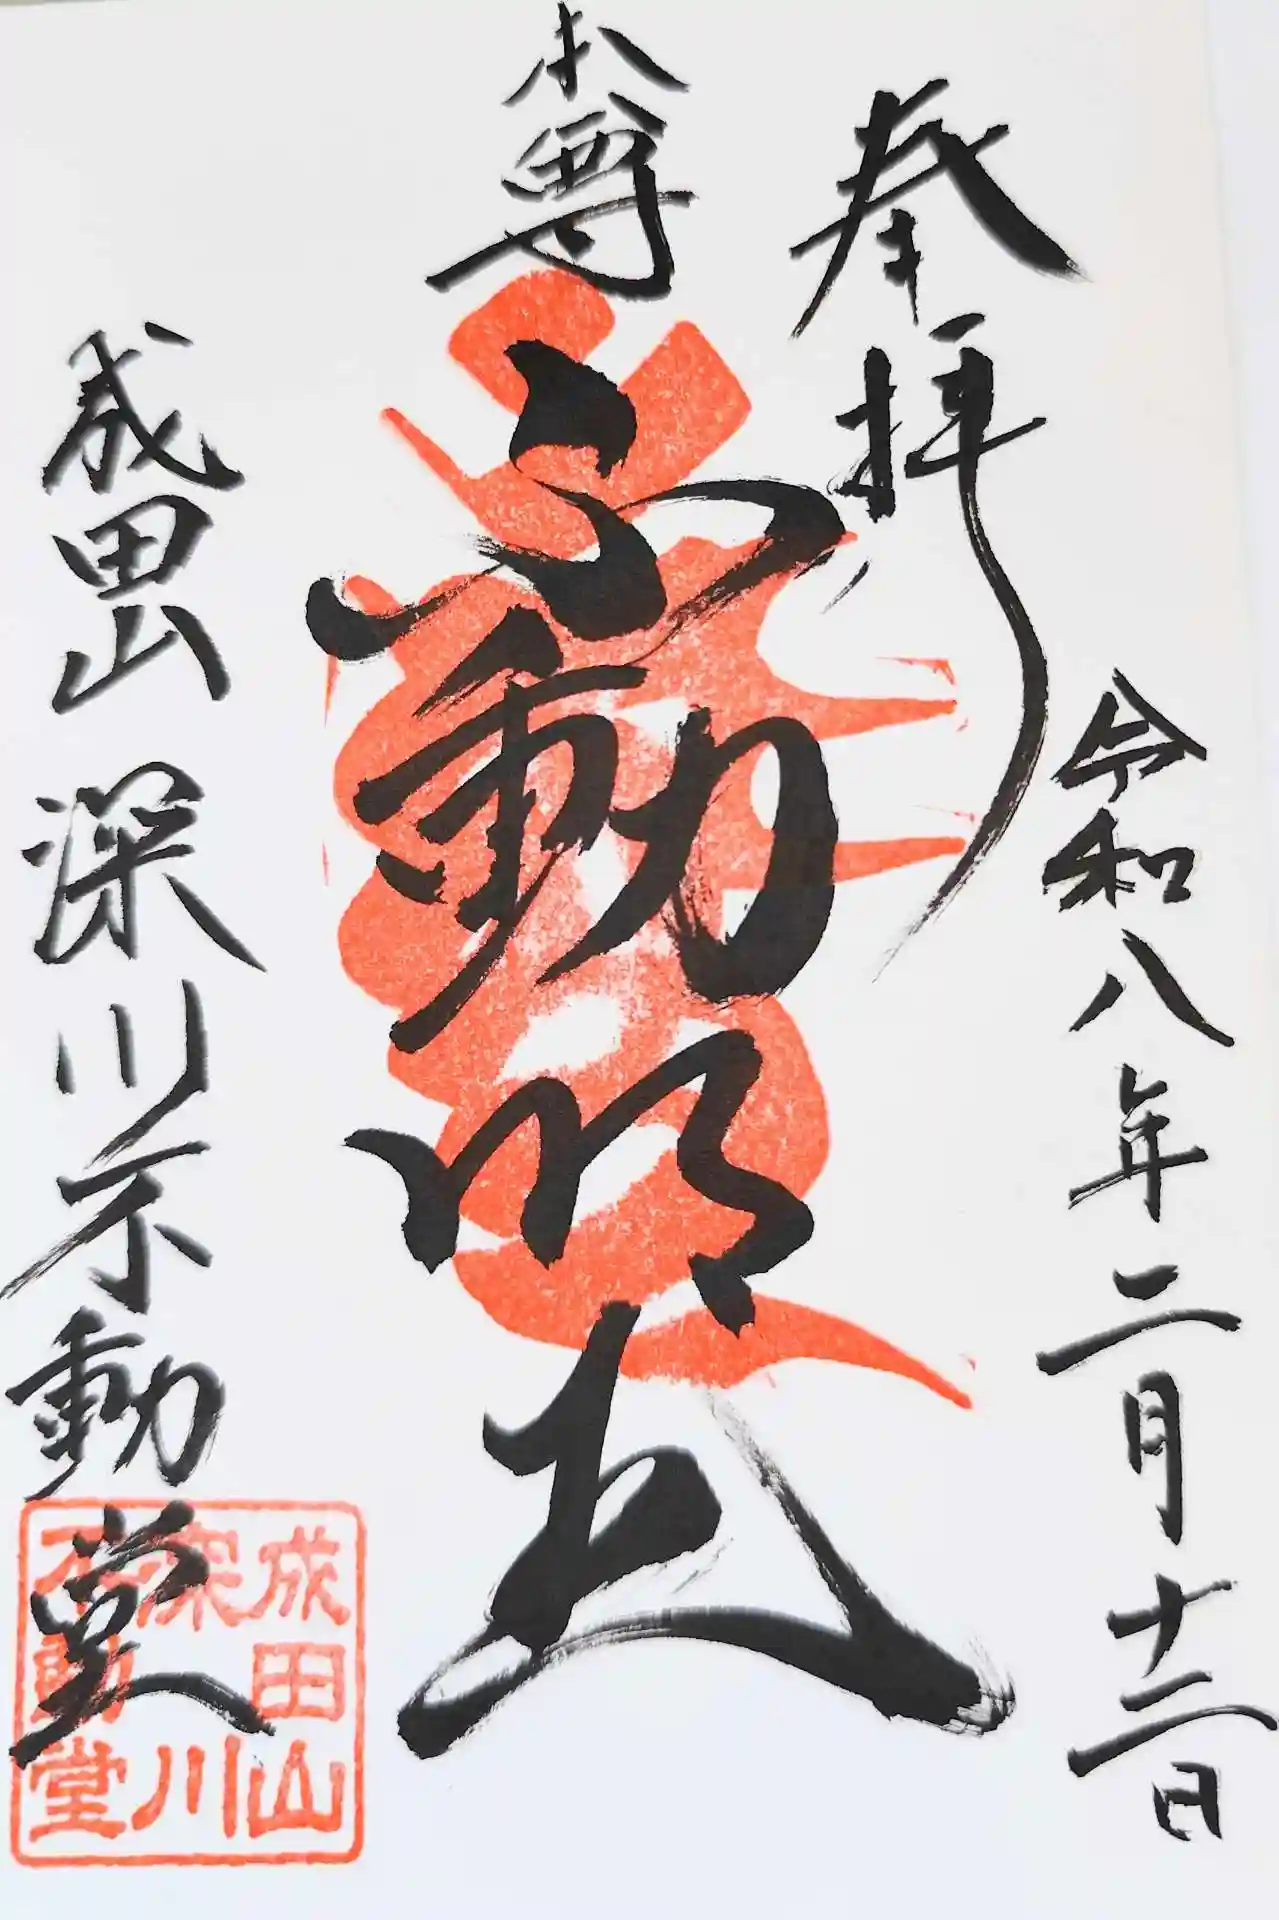 奉拝
令和八年二月十二日
本尊
不動明王
成田山 深川不動堂
成田山
深川
不動堂